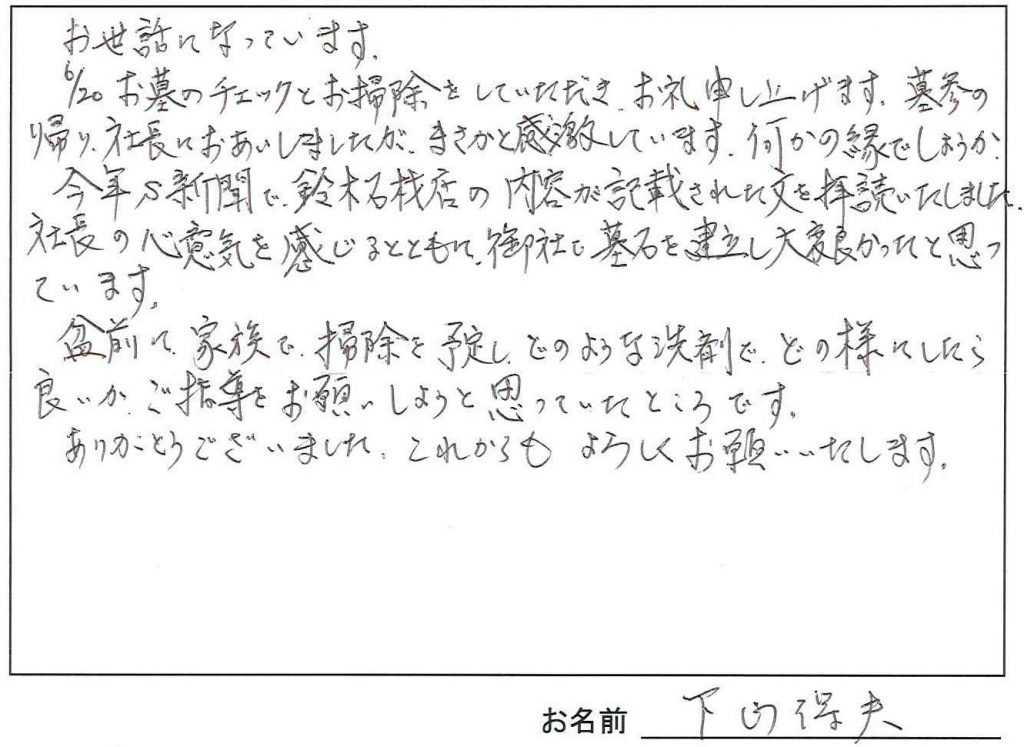 お世話になっています。
6/20 お墓のチェックとお掃除をしていただき、お礼申し上げます。墓参の
帰り、社長におあいしましたが、まさかと感激しています。何かの縁でしょうか。
今年S新聞で、鈴木石材店の内容が記載された文を拝読いたしました。
社長の心意気を感じるとともに、御社で墓石を建立し大変良かったと思っ
ています。
盆前に、家族で、掃除を予定し、どのような洗剤で、どの様にしたら
良いか、ご指導をお願いしようと思っていたところです。
ありがとうございました。これからも よろしくお願いいたします。
お名前 下山保夫